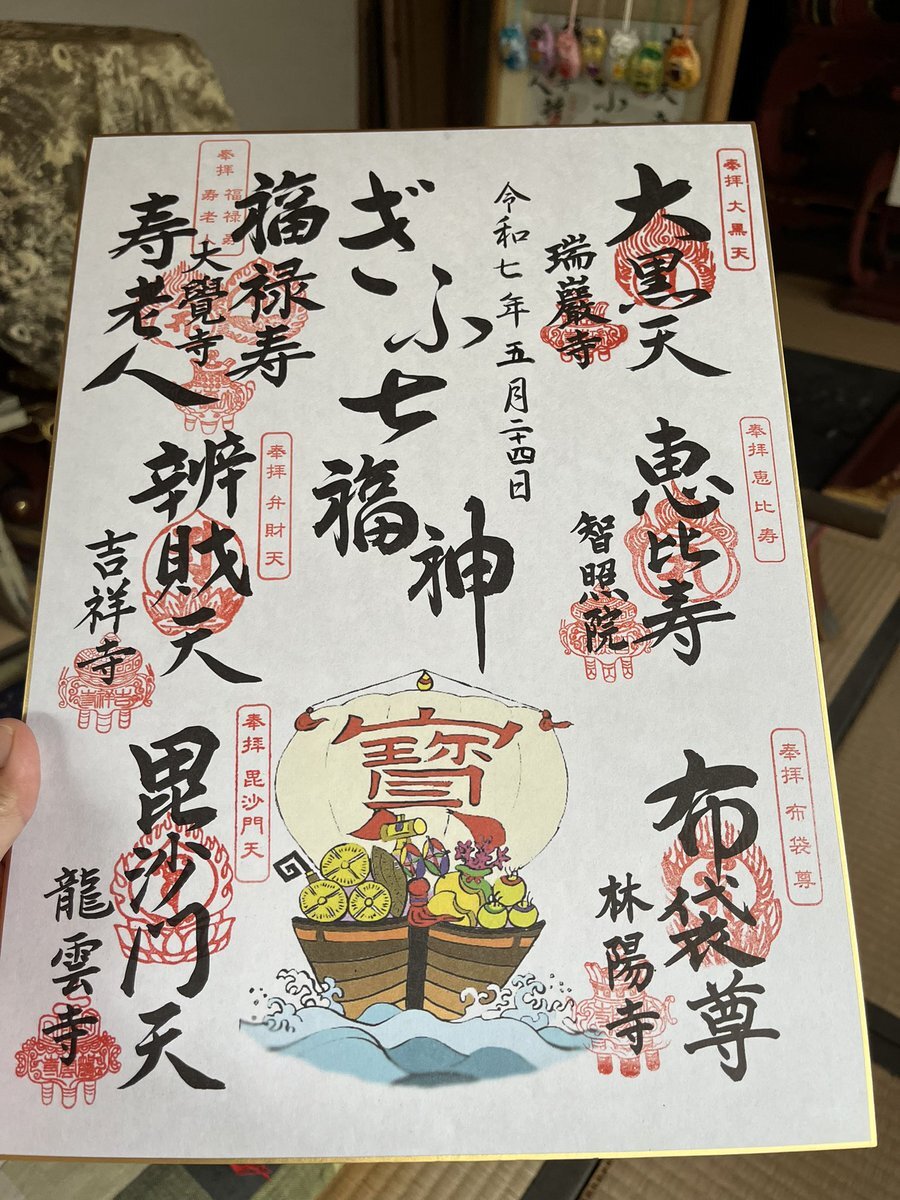 奉拝 大黒天
大黒天
瑞巖寺
奉拝 恵比寿
恵比寿
智照院
奉拝 布袋尊
布袋尊
林陽寺
令和七年五月二十四日
ぎふ七福神
寶
奉拝 福禄寿
寿老人
福禄寿
大覺寺
寿老人
奉拝 弁財天
辨財天
吉祥寺
奉拝 毘沙門天
毘沙門天
龍雲寺